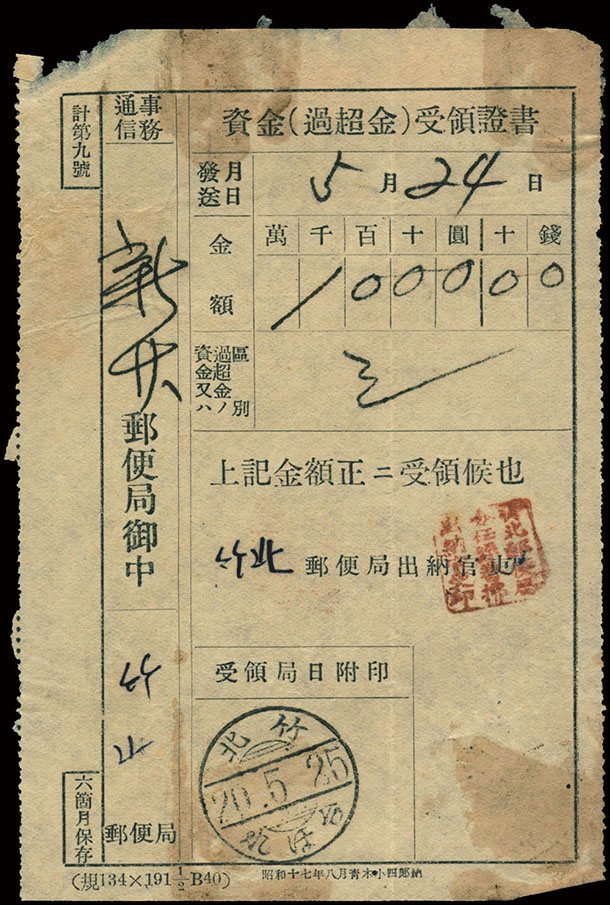 計第九號
事務
通信
資金(過超金)受領證書
發送月日 5月24日
金額
萬千百十圓十錢
1000000
區別
過超金ノ
資金又ハ
新竹郵便局御中
上記金額正ニ受領候也
竹北郵便局出納官吏
受領局日附印
竹北
20.5.25
竹
北
郵便局
六箇月保存
(規134×191½B40)
昭和十七年八月青木小四郎納